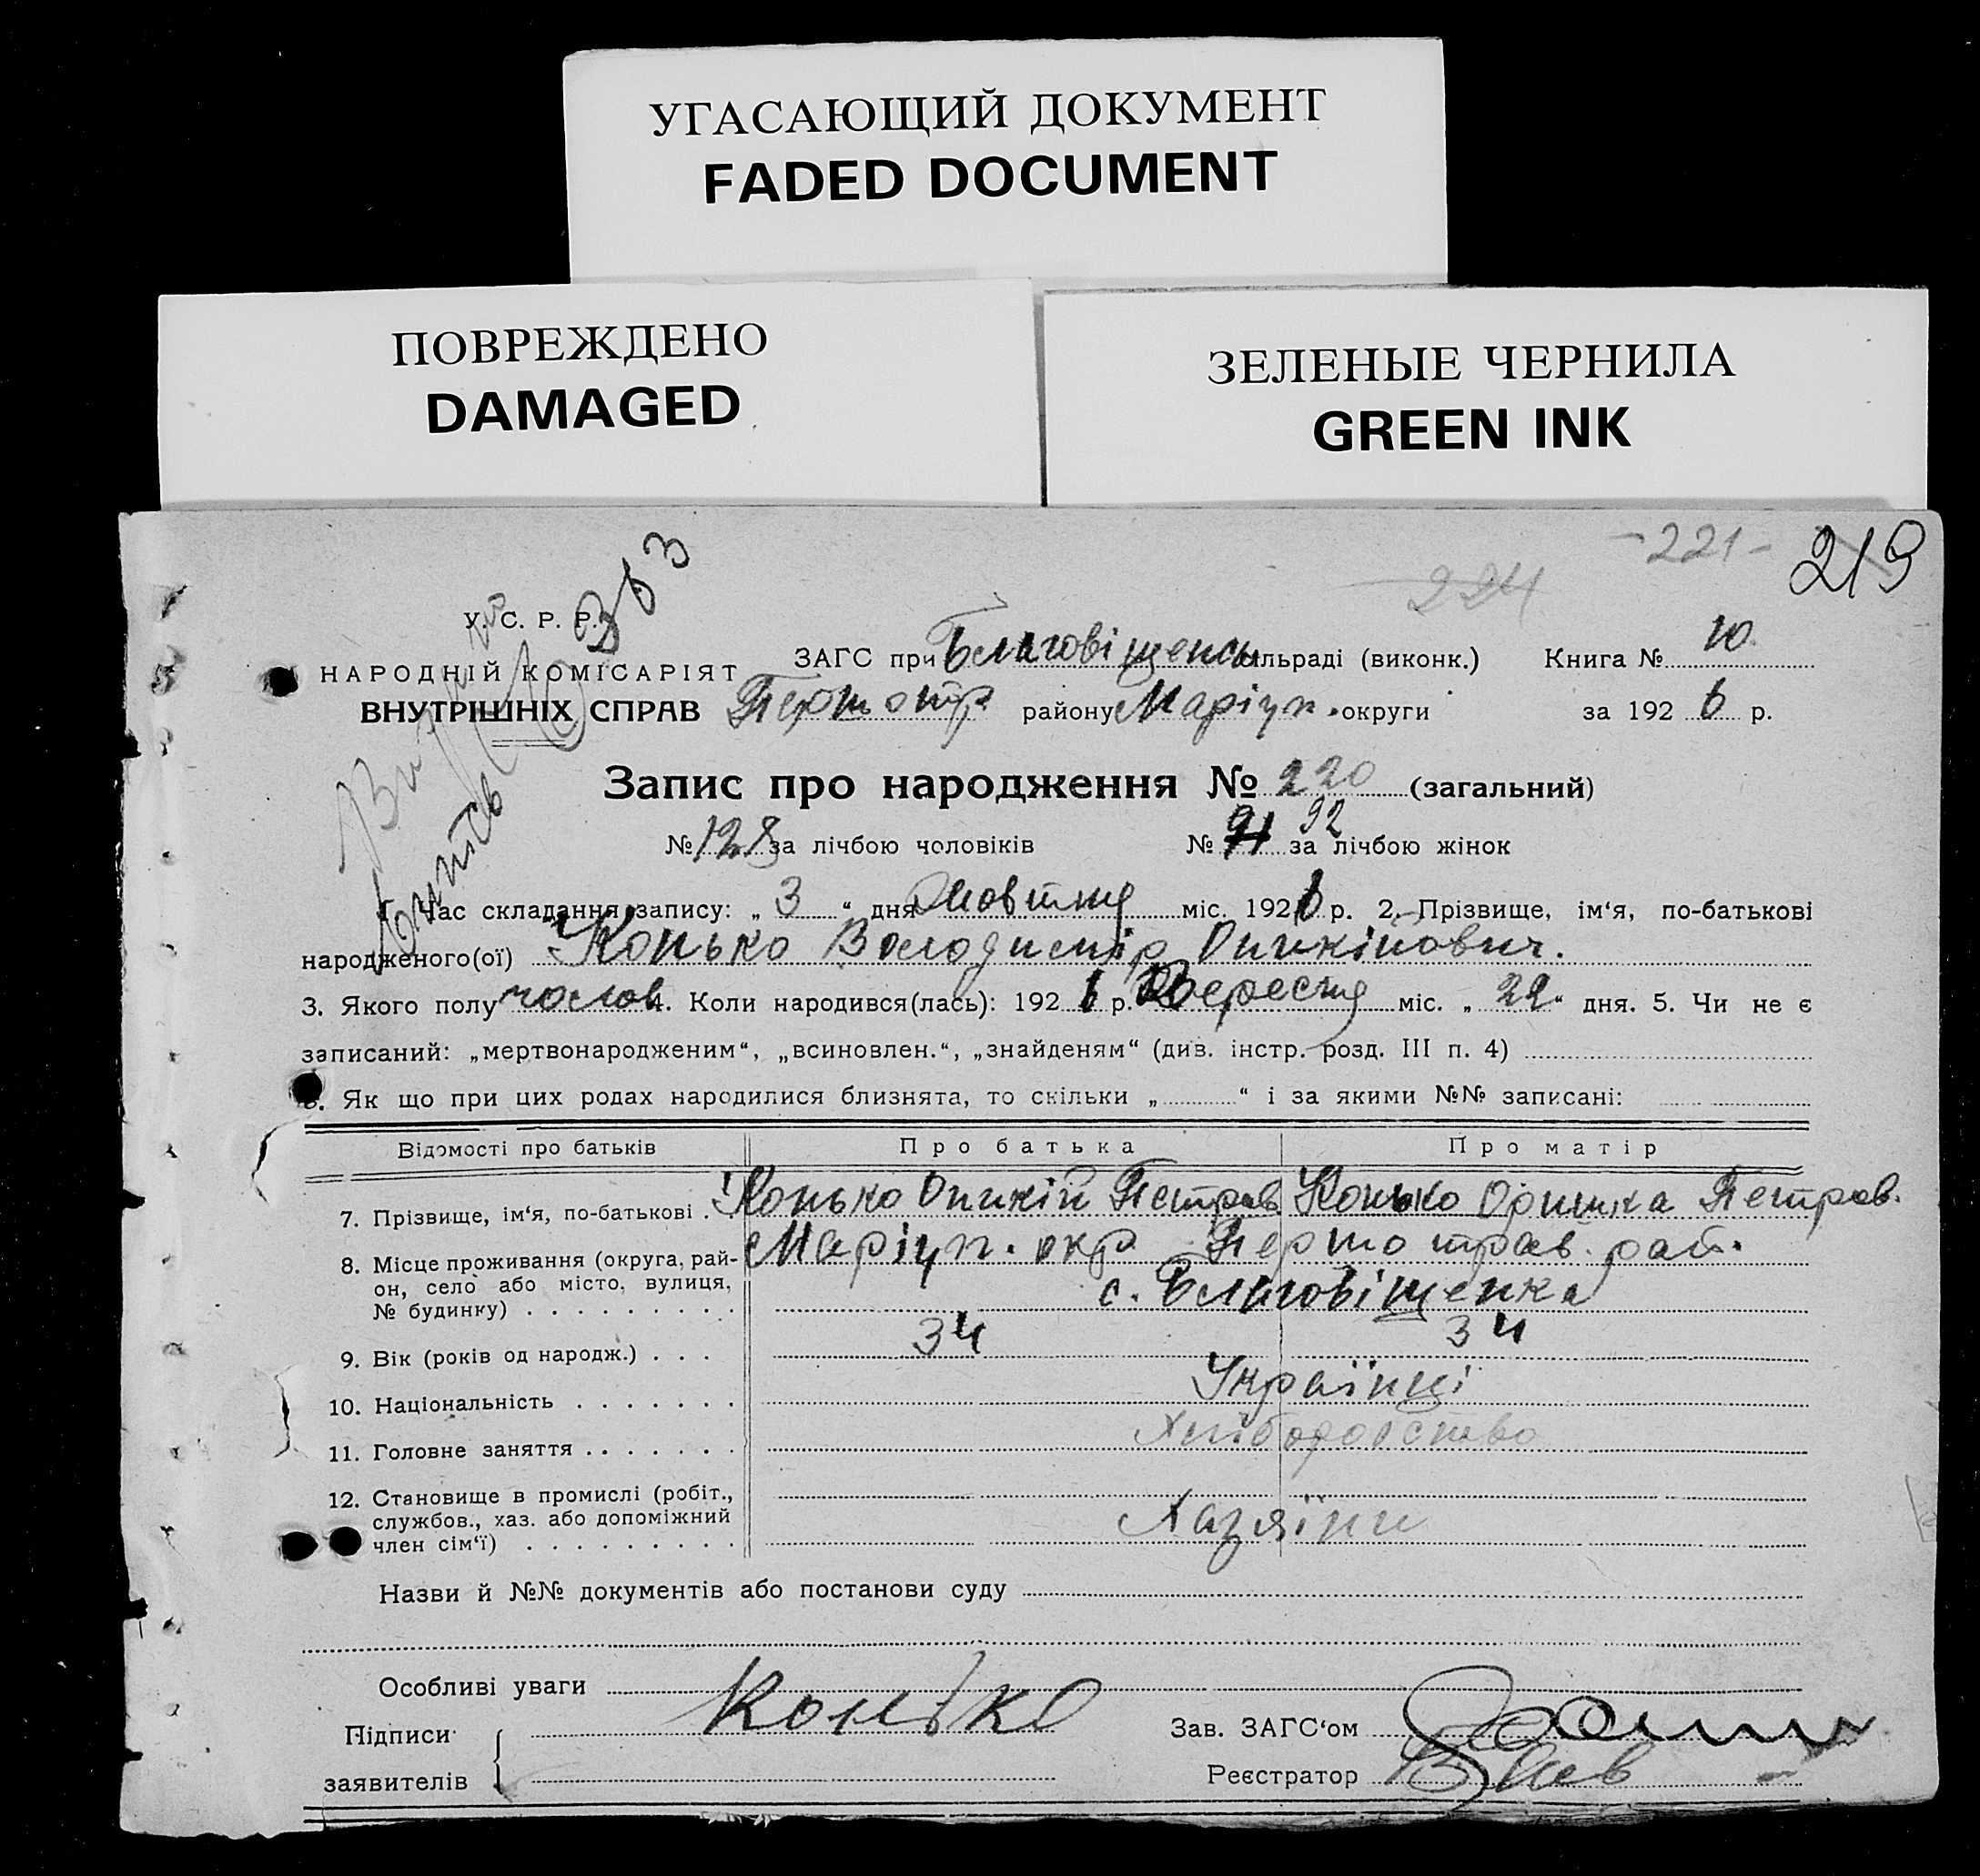 УГАСАЮЩИЙ ДОКУМЕНТ
FADED DOCUMENT
ПОВРЕЖДЕНО
DAMAGED
ЗЕЛЕНЫЕ ЧЕРНИЛА
GREEN INK
-221- 219
224
383
У. С. Р. Р.
НАРОДНІЙ КОМІСАРІЯТ
ВНУТРІШНІХ СПРАВ
ЗАГС при Благовіщенсь сільраді (виконк.) Книга № 10
Першотр району Маріуп. округи за 1926 р.
Запис про народження № 220 (загальний)
№ 128 за лічбою чоловіків № 91 92 за лічбою жінок
1. Час складання запису: „ 3 “ дня Жовтня міс. 1926 р. 2. Прізвище, ім‘я, по-батькові
народженого(ої) Конько Володимір Оникійович.
3. Якого полу чолов 4. Коли народився(лась): 1926 р. Вересня міс. „ 22 “ дня. 5. Чи не є
записаний: „мертвонародженим“, „всиновлен.“, „знайденям“ (див. інстр. розд. III п. 4)
6. Як що при цих родах народилися близнята, то скільки „ “ і за якими №№ записані:
Відомості про батьків Про батька Про матір
7. Прізвище, ім‘я, по-батькові . . Конько Оникій Петров Конько Оришка Петров.
8. Місце проживання (округа, рай-
он, село або місто, вулиця,
№ будинку) . . . . . . . . .
Маріуп. окр Першотрав. рай.
с. Благовіщенка
9. Вік (років од народж.) . . . 34 34
10. Національність . . . . . . . Українці
11. Головне заняття . . . . . . . Хліборобство
12. Становище в промислі (робіт.,
службов., хаз. або допоміжний
член сім‘ї) . . . . . . . . .
Хазяїни
Назви й №№ документів або постанови суду
Особливі уваги
Підписи
заявителів
Конько
Зав. ЗАГС‘ом
Реєстратор